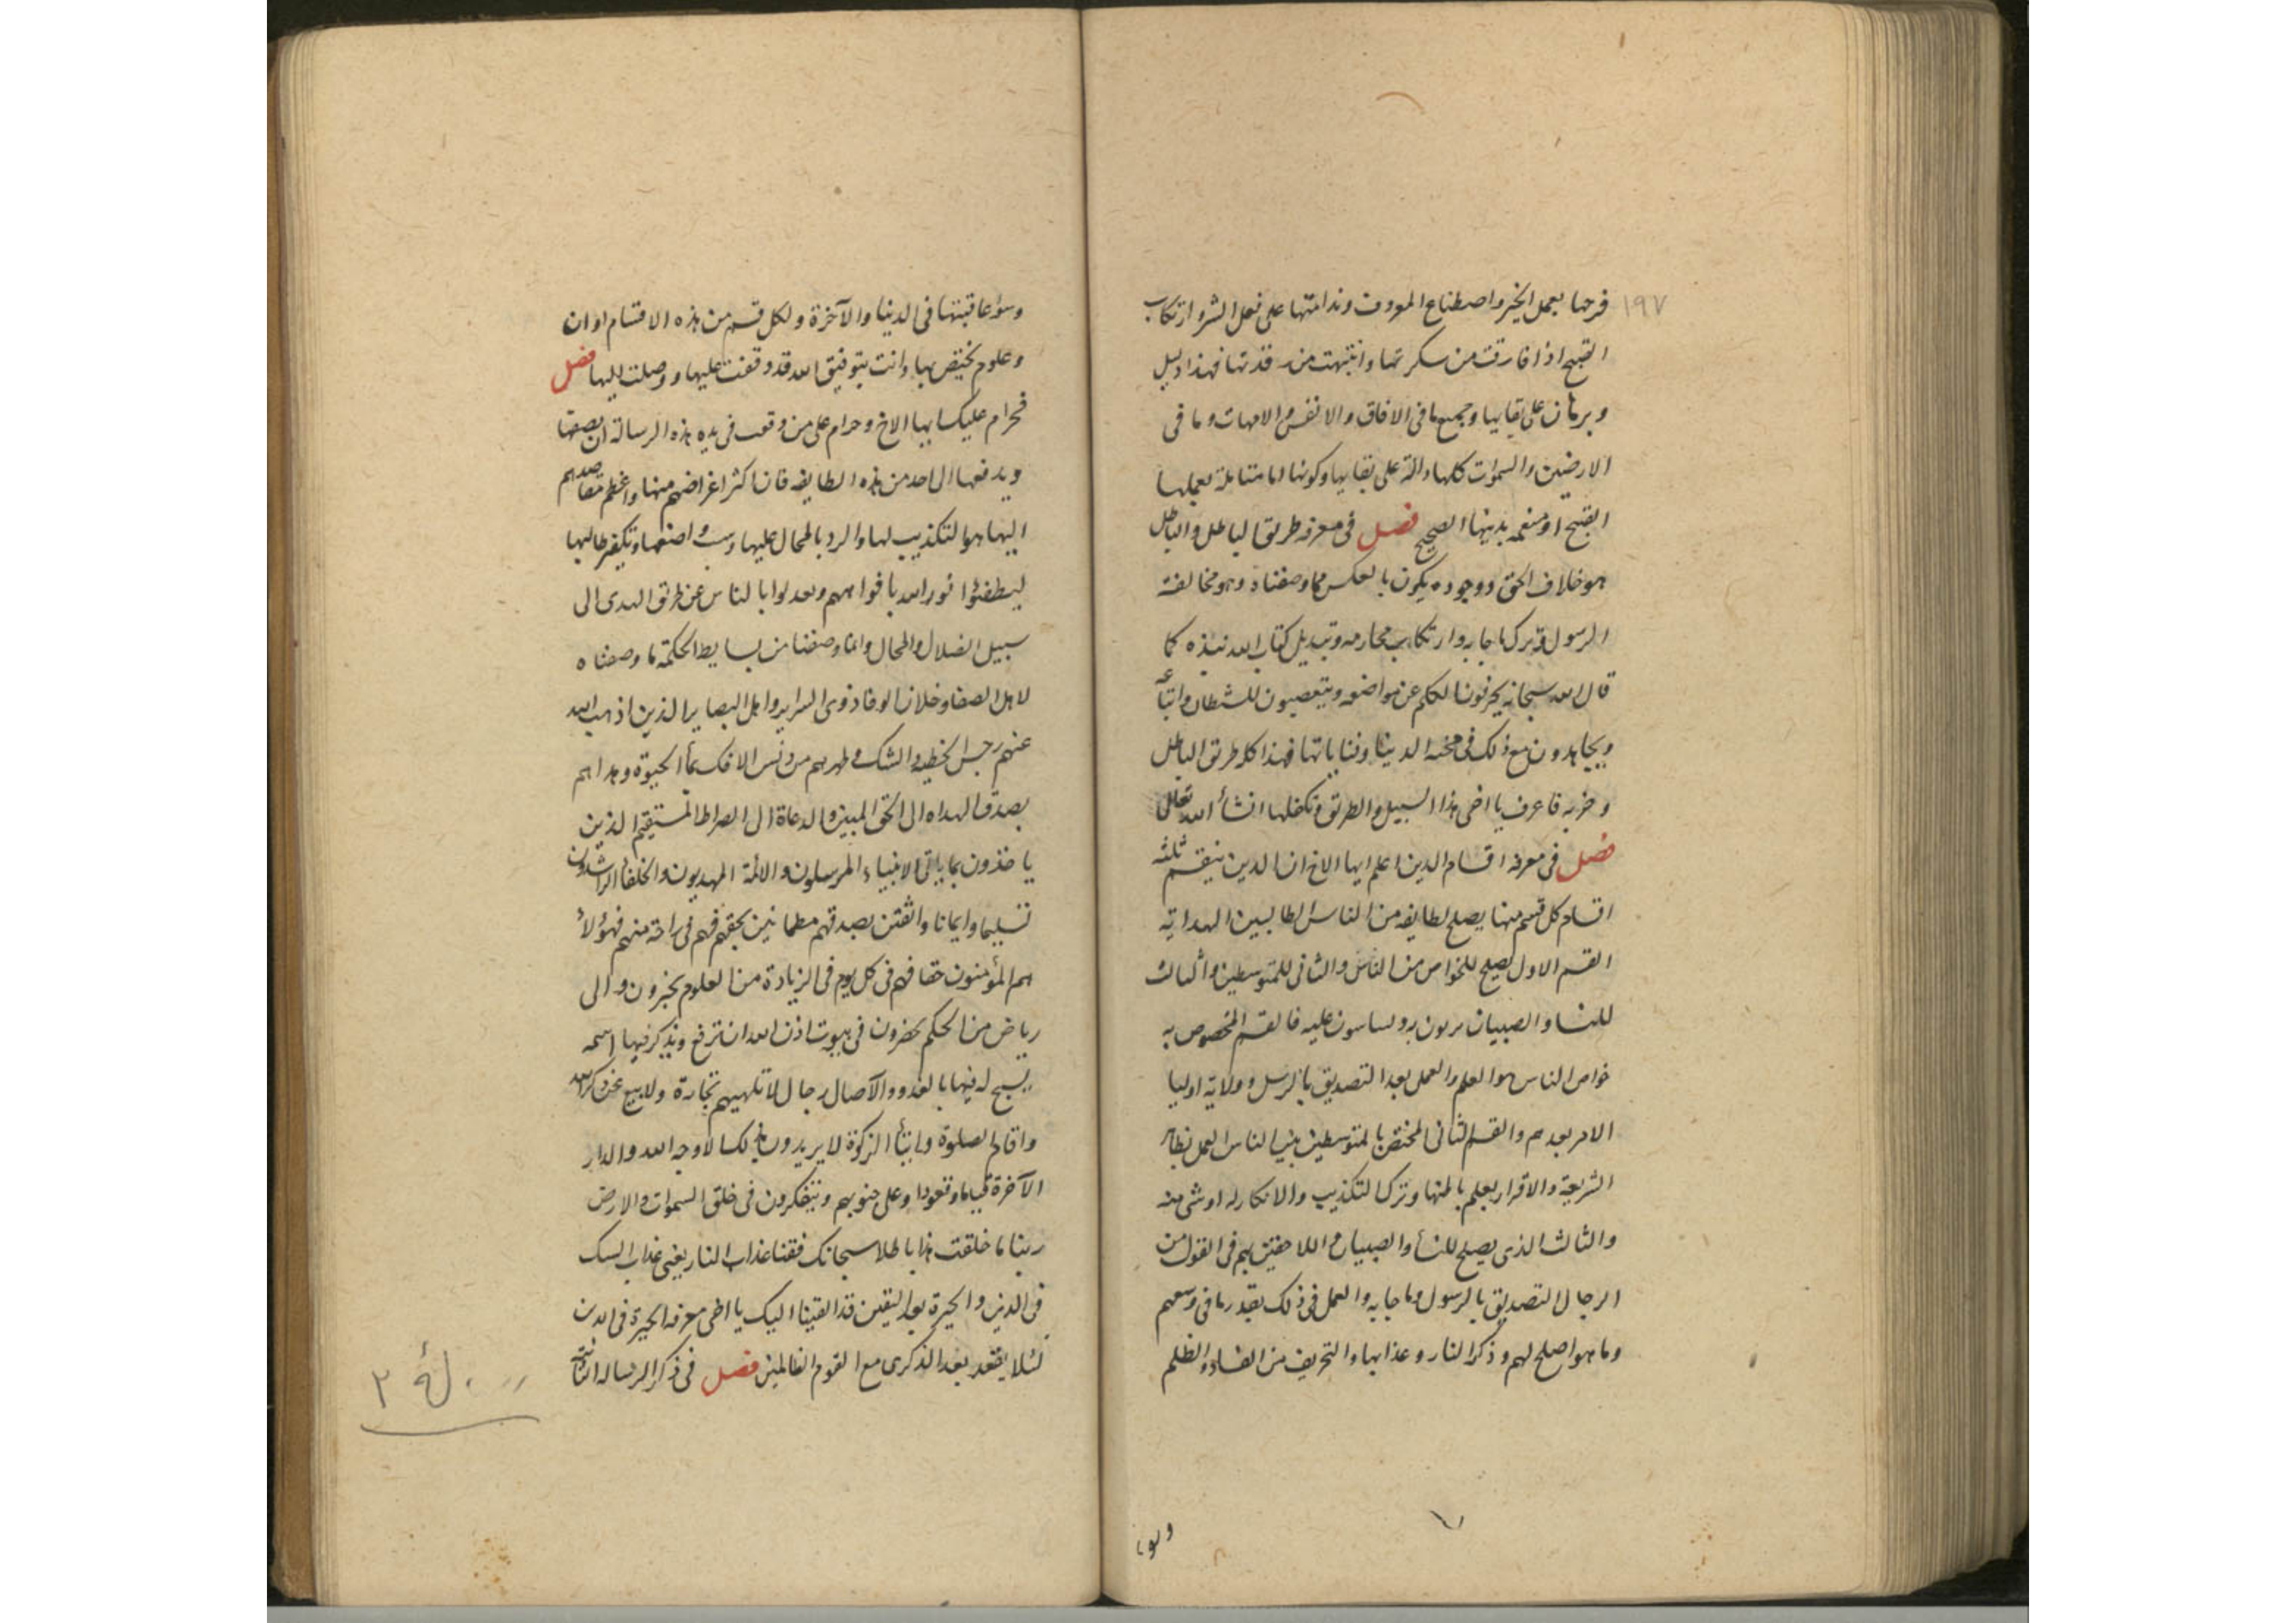 ١٩٧
فرحها بعمل الخير واصطناع المعروف وندامتها على فعل الشر وارتكاب
القبيح اذا فارقت من سكرتها وانتبهت من رقدتها فهذا دليل
وبرهان على بقايها وجميع ما فى الافاق والانفس والامهات وما فى
الارضين والسموات كلها دالة على بقايها وكونها اما متنابلة بعملها
القبيح او منعمه بدينها الصحيح فصل فى معرفه طريق الباطل والباطل
هو خلاف الحق ووجوده يكون بالعكس مما وصفناه وهو مخالفة
الرسول وترك ما جا به وارتكاب محارمه وتبديل كتاب الله ونبذه كما
قال الله سبحانه يحرفون الكلم عن مواضعه ويتعصبون للشيطان واتباعه
ويجاهدون مع ذلك فى محنه الدنيا وفنايا تها فهذا كله طريق الباطل
وحزبه فاعرف يا اخى هذا السبيل والطريق وتكفلها انشأ الله تعالى
فصل فى معرفه اقسام الدين اعلم ايها الاخ ان الدين ينقسم ثلثه
اقسام كل قسم منها يصلح لطايفه من الناس الطالبين الهداية
القسم الاول يصلح للخواص من الناس والثانى للمتوسطين والثالث
للنسا والصبيان يربون به ويساسون عليه فالقسم المخصوص به
خواص الناس هو العلم والعمل بعد التصديق بالرسل وولاية اوليا
الامر بعدهم والقسم الثانى المختص بالمتوسطين بين الناس العمل بظاهر
الشريعة والاقرار بعلم بالمنها وترك التكذيب والانكار له او شى منه
والثالث الذى يصلح للنسأ والصبيان واللاحقين بهم فى القول من
الرجال التصديق بالرسول وما جا به والعمل فى ذلك بقدر ما فى وسعهم
وما هو اصلح لهم وذكر النار وعذابها والتخريف من الفساد والظلم
وسؤ عاقبتها فى الدنيا والآخرة ولكل قسم من هذه الاقسام اوان
وعلوم يختص بها وانت بتوفيق الله قد وقفت عليها ووصلت اليها فصل
فحرام عليك ايها الاخ وحرام على من وقعت فى يده هذه الرسالة ان
ويدفعها الى احد من هذه الطايفه فان اكثر اغراضهم منها واعظم مقاصدهم
اليها هو التكذيب لها والرد بالمحال عليها وسب واضعها وتكفير طالبها
ليطفئوا نور الله بافواههم ويعدلوا بالناس عن طريق الهدى الى
سبيل الضلال والمحال وانما وصفنا من بسايط الحكمة ما وصفناه
لاهل الصفا وخلان الوفا ذوى السراير واهل البصاير الذين اذهب الله
عنهم رجس الخطيه والشك وطهرهم من دنس الافك بمأ الحيوة وهداهم
بصدق الهداه الى الحق المبين والدعاة الى الصراط المستقيم الذين
ياخذون بما ياتى الانبياء المرسلون والائمة المهديون والخلفا الراشدون
تسليما وايمانا واثقين بصدقهم مطمانين بحقهم فهم فى راحة منهم فهؤلأ
هم المؤمنون حقا فهم فى كل يوم فى الزيادة من العلوم يخبرون والى
رياض من الحكم يحضرون فى بيوت اذن الله ان ترفع ويذكر فيها اسمه
يسبح له فيها بالغدو والآصال رجال لا تلهيهم تجارة ولا بيع عن ذكر الله
واقام الصلوة وايتأ الزكوة لا يريدون بذلك الا وجه الله والدار
الآخرة قياما وقعودا وعلى جنوبهم ويتفكرون فى خلق السموات والارض
ربنا ما خلقت هذا باطلا سبحانك فقنا عذاب النار يعنى عذاب الشك
فى الدين والحيرة بعد اليقين قد القينا اليك يا اخى معرفه الحيرة فى الدين
لئلا يقعد بعد الذكرى مع القوم الظالمين فصل فى ذكر الرساله الثانية